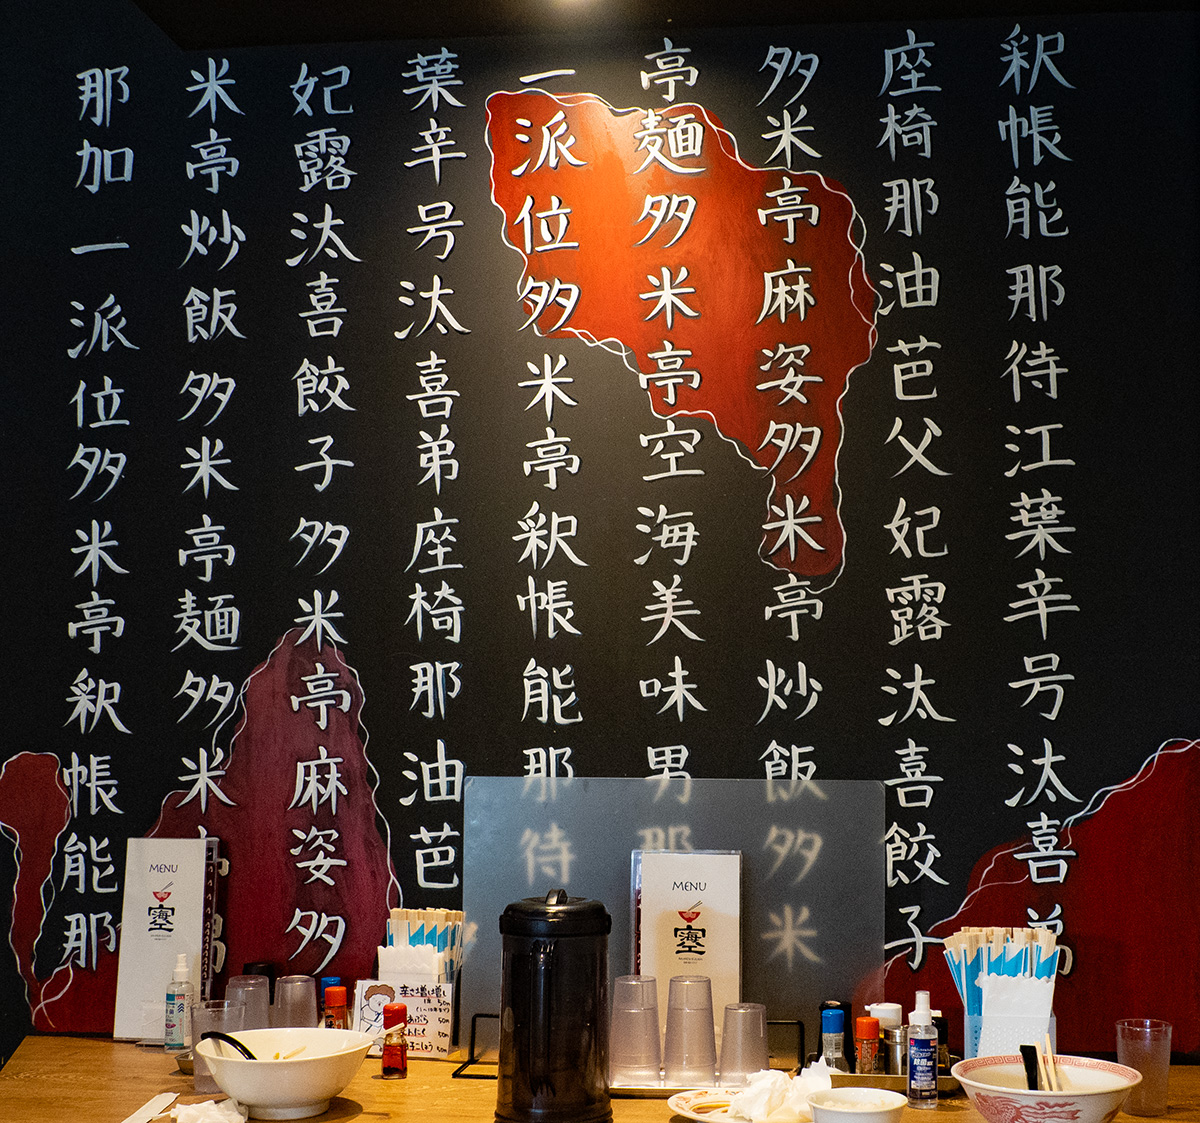 釈帳能那待江葉辛号汰喜弟
座椅那油芭父妃露汰喜餃子
多米亭麻姿多米亭炒飯多米
亭麺多米亭空海美味男那
一派位多米亭釈帳能那待
葉辛号汰喜弟座椅那油芭
妃露汰喜餃子多米亭麻姿多
米亭炒飯多米亭麺多米亭
那加一派位多米亭釈帳能那
MENU
空海
MENU
空海
辛さ増し増し
あぶら
子こしょう